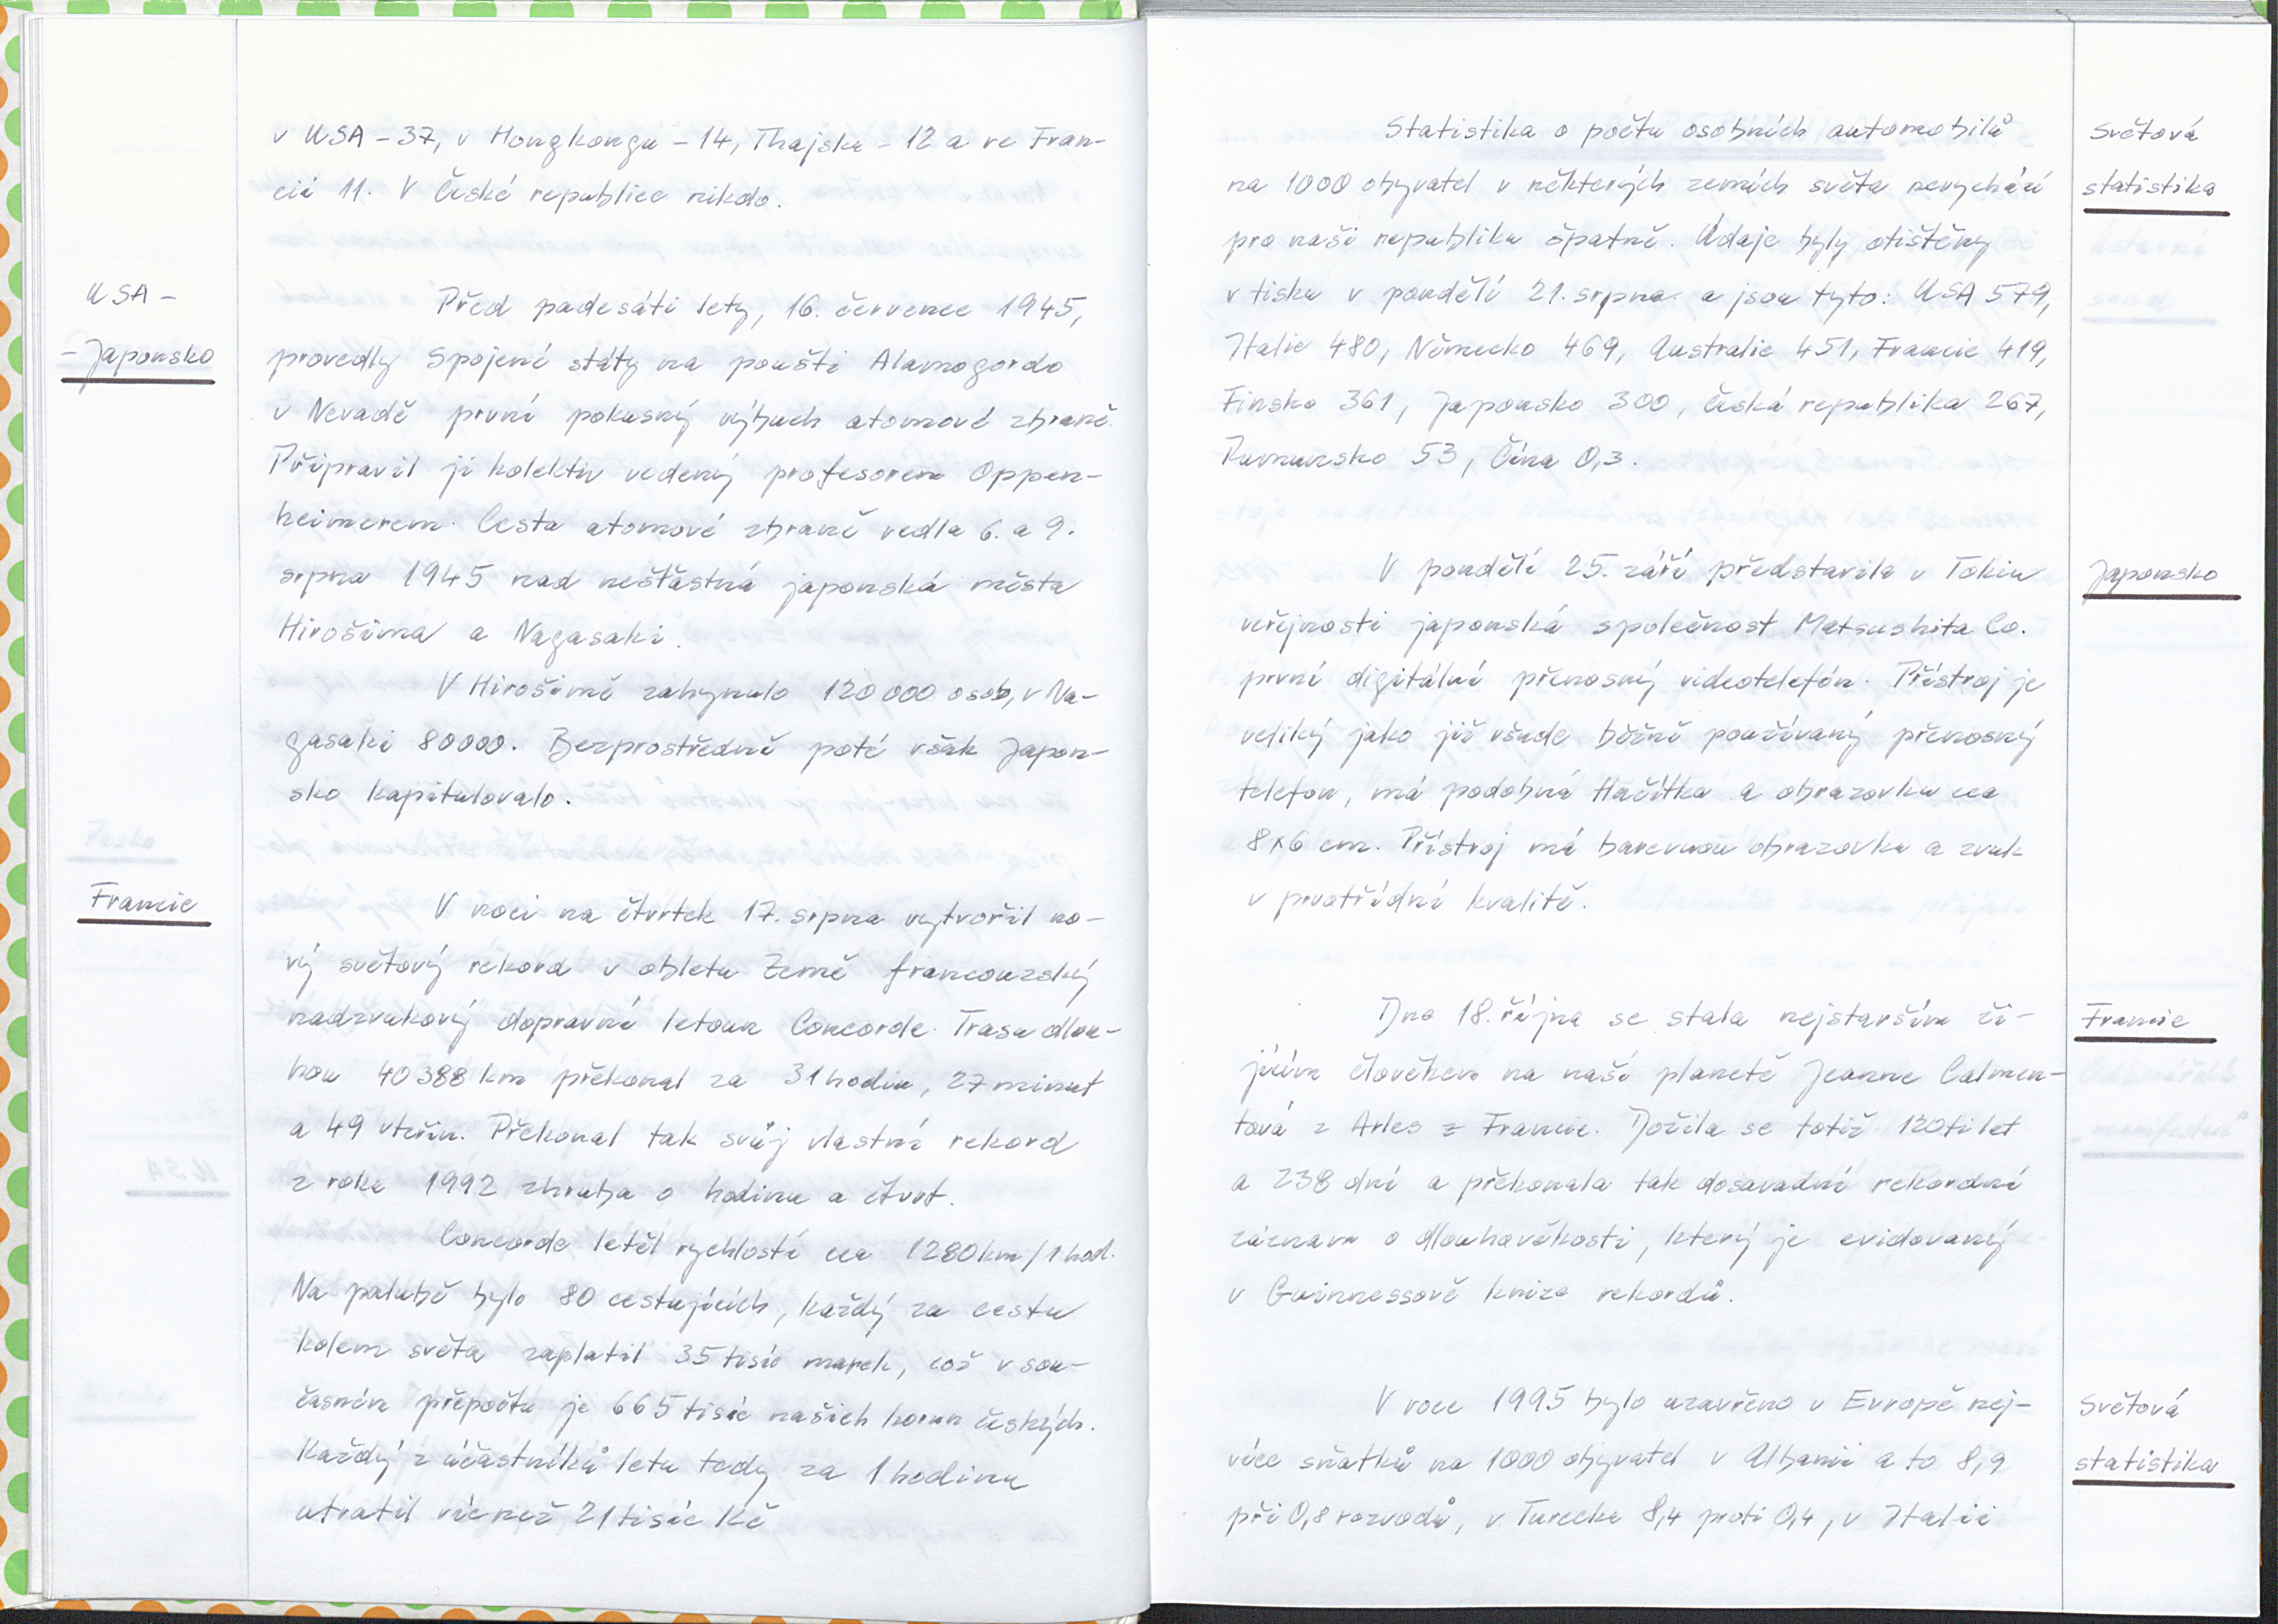 v USA – 37, v Hongkongu – 14, Thajsku – 12 a ve Fran-
cii 11. V České republice nikdo.
USA –
– Japonsko
Před padesáti lety, 16. července 1945,
provedly Spojené státy na poušti Alamogordo
v Nevadě první pokusný výbuch atomové zbraně.
Připravil ji kolektiv vedený profesorem Oppen-
heimerem. Cesta atomové zbraně vedla 6. a 9.
srpna 1945 nad nešťastná japonská města
Hirošima a Nagasaki.
V Hirošimě zahynulo 120 000 osob, v Na-
gasaki 80000. Bezprostředně poté však Japon-
sko kapitulovalo.
Francie
V noci na čtvrtek 17. srpna vytvořil no-
vý světový rekord v obletu Země francouzský
nadzvukový dopravní letoun Concorde. Trasu dlou-
hou 40388 km překonal za 31 hodin, 27 minut
a 49 vteřin. Překonal tak svůj vlastní rekord
z roku 1992 zhruba o hodinu a čtvrt.
Concorde letěl rychlostí cca 1280 km/1 hod.
Na palubě bylo 80 cestujících, každý za cestu
kolem světa zaplatil 35 tisíc marek, což v sou-
časném přepočtu je 665 tisíc našich korun českých.
Každý z účastníků letu tedy za 1 hodinu
utratil víc než 21 tisíc Kč
Světová
statistika
Statistika o počtu osobních automobilů
na 1000 obyvatel v některých zemích světa nevychází
pro naši republiku špatně. Údaje byly otištěny
v tisku v pondělí 21. srpna a jsou tyto: USA 579,
Italie 480, Německo 469, Australie 451, Francie 419,
Finsko 361, Japonsko 300, Česká republika 267,
Rumunsko 53, Čína 0,3.
Japonsko
V pondělí 25. září představila v Tokiu
veřejnosti japonská společnost Matsushita Co.
první digitální přenosný videotelefón. Přístroj je
veliký jako již všude běžně používaný přenosný
telefon, má podobná tlačítka a obrazovku cca
8x6 cm. Přístroj má barevnou obrazovku a zvuk
v prvotřídní kvalitě.
Francie
Dne 18. října se stala nejstarším ži-
jícím člověkem na naší planetě Jeanne Calmen-
tová z Arles z Francie. Dožila se totiž 120ti let
a 238 dní a překonala tak dosavadní rekordní
záznam o dlouhověkosti, který je evidovaný
v Guinnessově knize rekordů.
Světová
statistika
V roce 1995 bylo uzavřeno v Evropě nej-
více sňatků na 1000 obyvatel v Albanii a to 8,9
při 0,8 rozvodů, v Turecku 8,4 proti 0,4, v Italii